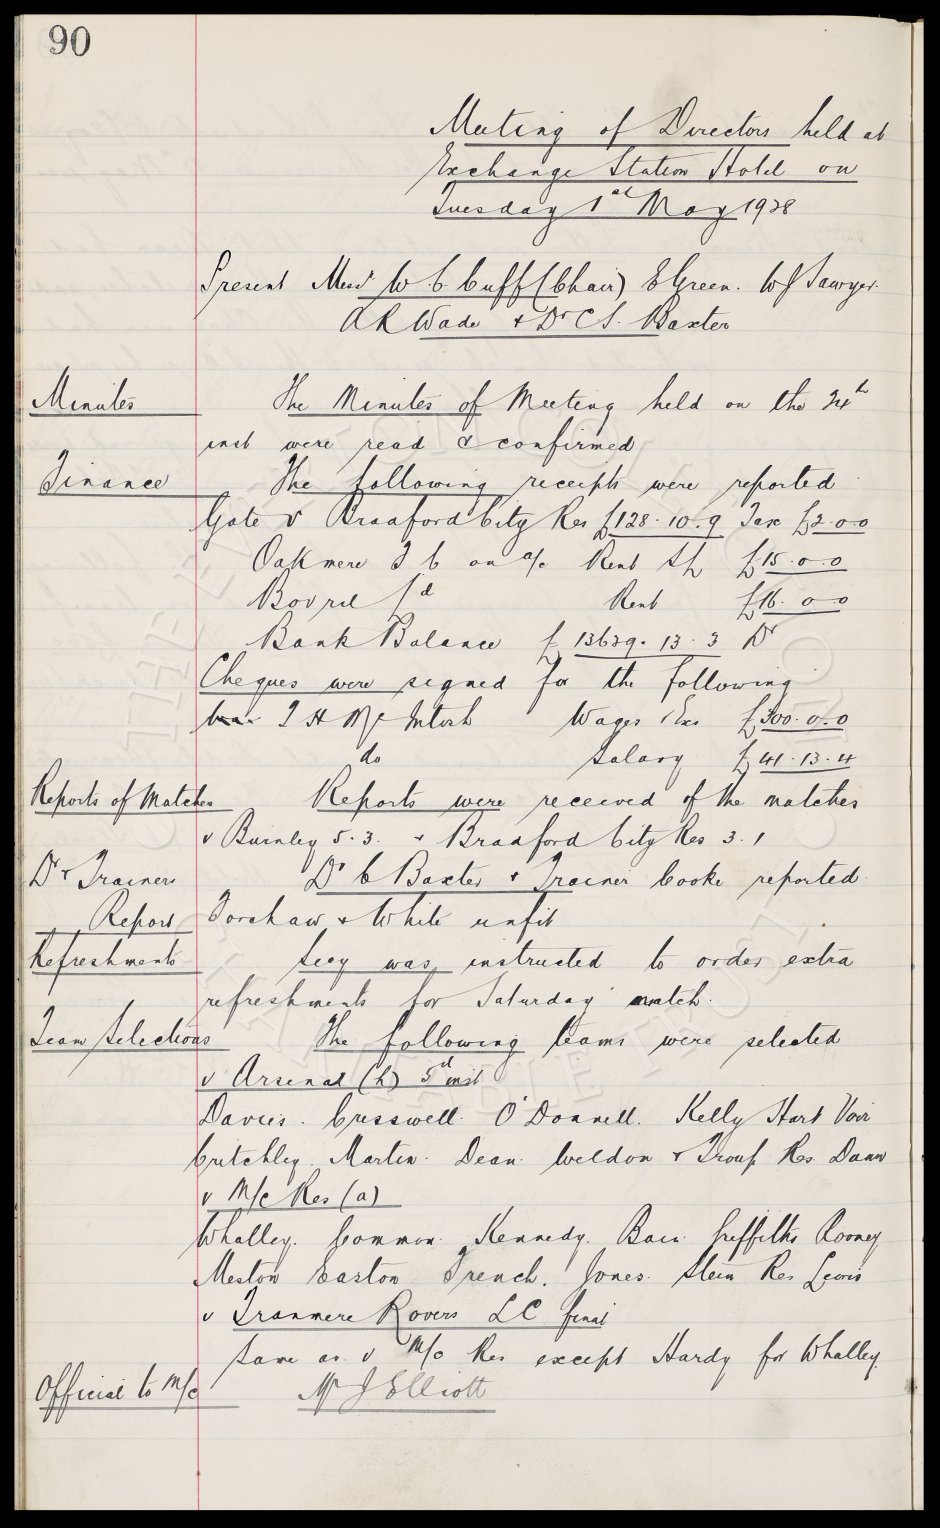 90
Meeting of Directors held at
Exchange Station Hotel on
Tuesday 1st May 1928
Present Messrs W. C. Cuff (Chair) E Green. W J Sawyer.
A R Wade & Dr C S. Baxter
Minutes The Minutes of Meeting held on the 24th
inst were read & confirmed
Finance The following receipts were reported
Gate v Bradford City Res £128. 10. 9 Tax £2. 0. 0
Oakmere F C on a/c Rent &c £15. 0. 0
Bovril Ld Rent £16. 0 0
Bank Balance £ 13629. 13. 3 Dr
Cheques were signed for the following
T H McIntosh Wages /Exs £300. 0. 0
do Salary £41. 13. 4
Reports of Matches Reports were received of the matches
v Burnley 5. 3. & Bradford City Res 3. 1
Dr & Trainers Dr C Baxter & Trainer Cooke reported.
Report Forshaw & White unfit
Refreshments Secy was instructed to order extra
refreshments for Saturday match.
Team Selections The following teams were selected
v Arsenal (h) 5th inst
Davies. Cresswell. O'Donnell. Kelly Hart Virr
Critchley. Martin. Dean. Weldon & Troup Res Dawson
v M/c Res (a)
Whalley. Common. Kennedy. Bain. Griffiths Rooney
Meston Easton French. Jones. Stein Res Lewis
v Tranmere Rovers L C final
Same as v M/c Res except Hardy for Whalley.
Official to M/c Mr J Elliott